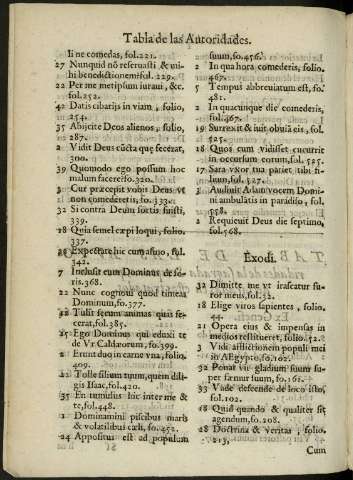 Tabla de las Autoridades.
Ii ne comedas, fol.221.
27 Nunquid nō reseruasti & mi-
hi benedictionem? fol. 229.
22 Per me metipsum iuraui, &c.
fol.252.
42 Datis cibarijs in viam, folio,
254.
35 Abijcite Deos alienos, folio,
287.
2 Vidit Deus cūcta quę fecerat,
300.
39 Quomodo ego possum hoc
malum facere? fo.320.
3 Cur præcepit vobis Deus vt
non comederetis, fo.333.
32 Si contra Deum fortis fuisti,
339.
18 Quia semel cæpi loqui, folio,
337.
Expectate hic cum asino, fol.
342.
7 Inclusit eum Dominus defo-
ris.368.
22 Nunc cognoui quod timeas
Dominum, fo.377.
22 Tulit secum animas quas fe-
cerat, fol.385.
25 Ego Dominus qui eduxi te
de Vr Caldæorum, fo.399.
2 Erunt duo in carne vna, folio,
409.
22 Tolle filium tuum, quem dili-
gis Isaac, fol.420.
35 En tumulus hic inter me &
te, fol.448.
1 Dominamini piscibus maris
& volatilibus cæli, fo.452.
24 Appositus est ad populum
suum, fo.456.
2 In qua hora comederis, folio.
467.
5 Tempus abbreuiatum est, fo.
481.
2 In quacunque die comederis,
fol.467.
19 Surrexit & iuit obuiā eis, fol.
525.
18 Quos cum vidisset cucurrit
in occursum eorum, fol.525.
17 Sara vxor tua pariet tibi fi-
lium, fol.527.
3 Audiuit Adam vocem Domi-
ni ambulatis in paradiso, fol.
558.
2 Requieuit Deus die septimo,
fol.568.
Exodi.
32 Dimitte me vt irascatur fu-
ror meus, fol.52.
18 Elige viros sapientes, folio,
44.
21 Opera eius & impensas in
medicos restitueret, folio.42.
3 Vide afflictionem populi mei
in AEgypto, fo.102.
32 Ponat vir gladium suum su-
per fæmur suum, fo.162.
33 Vade descende de loco isto,
fol.102.
18 Quid quando & qualiter sit
agendum, fo.208.
28 Doctrina & veritas, folio.
213.
Cum